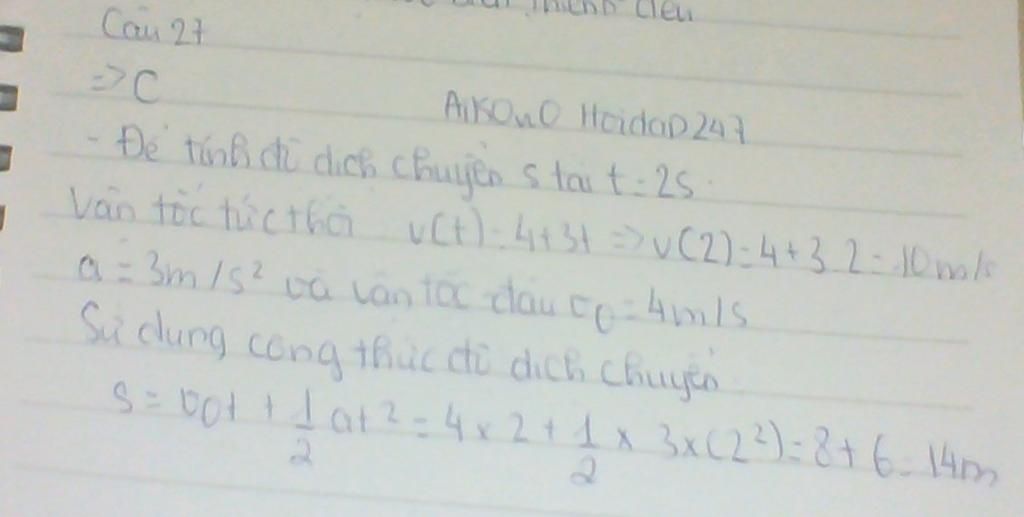 thiên đều
Câu 27
=> C
AiKOuO Hoidap247
- Để tính đi dịch chuyển s tại t = 2s.
Vân tốc tức thời v(t) = 4+3t => v(2) = 4+3.2 = 10m/s
a = 3m/s² và vân tốc đầu v0 = 4m/s
Sử dụng công thức đi dịch chuyển
s = v0t + 1/2 at² = 4 x 2 + 1/2 x 3x(2²) = 8 + 6 = 14m